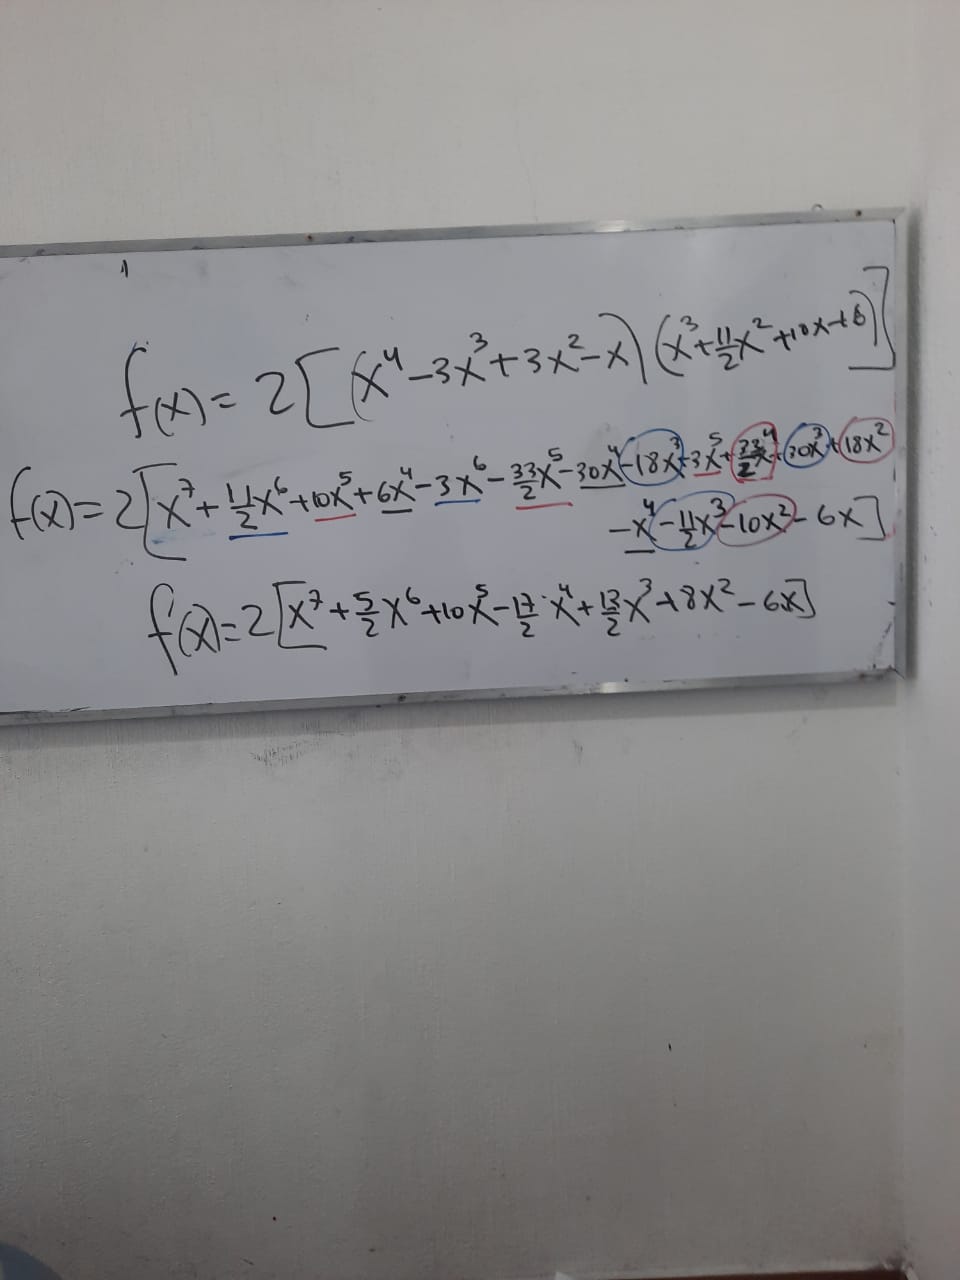 f(x) = 2[(x⁴ - 3x³ + 3x² - x)(x³ + 11/2 x² + 10x + 6)]
f(x) = 2[x⁷ + 11/2 x⁶ + 10x⁵ + 6x⁴ - 3x⁶ - 33/2 x⁵ - 30x⁴ - 18x³ + 3x⁵ + 33/2 x⁴ + 30x³ + 18x²
- x⁴ - 11/2 x³ - 10x² - 6x]
f(x) = 2[x⁷ + 5/2 x⁶ + 10x⁵ - 17/2 x⁴ + 13/2 x³ + 8x² - 6x]